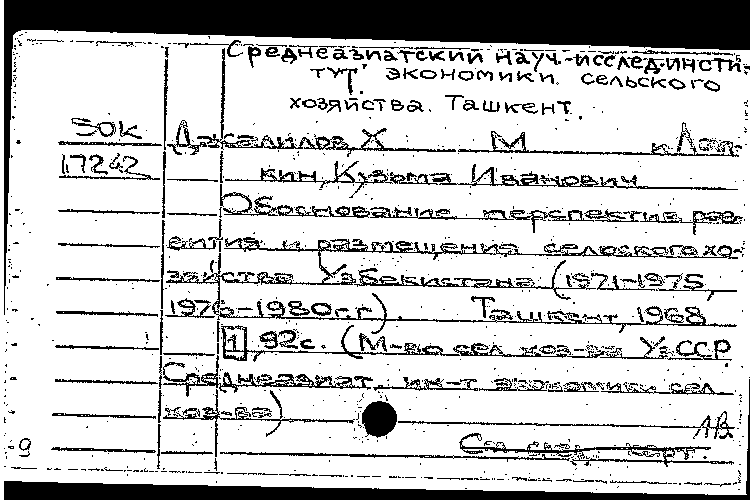 Среднеазиатский науч.-исслед.инсти-
тут экономики сельского
хозяйства. Ташкент.
50К Джалилов, Х М и Лап-
17242 кин, Кузьма Иванович
Обоснование перспектив раз-
вития и размещения сельского хо-
зяйства Узбекистана (1971-1975,
1976-1980гг). Ташкент, 1968
1, 92с. (М-во сел хоз-ва УзССР.
Среднеазиат. ин-т экономики сел
хоз-ва)
АВ
9 См. след. карт.